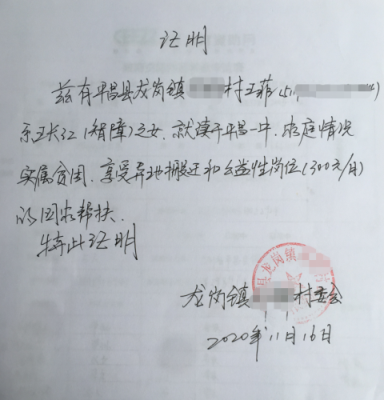 证明
兹有平昌县龙岗镇 村王菲(51 4)
系王长江(智障)之女,就读于平昌一中,家庭情况
实属贫困,享受异地搬迁和公益性岗位(300元/月)
的国家帮扶.
特此证明
县龙岗镇
龙岗镇 村委会
2020年11月16日